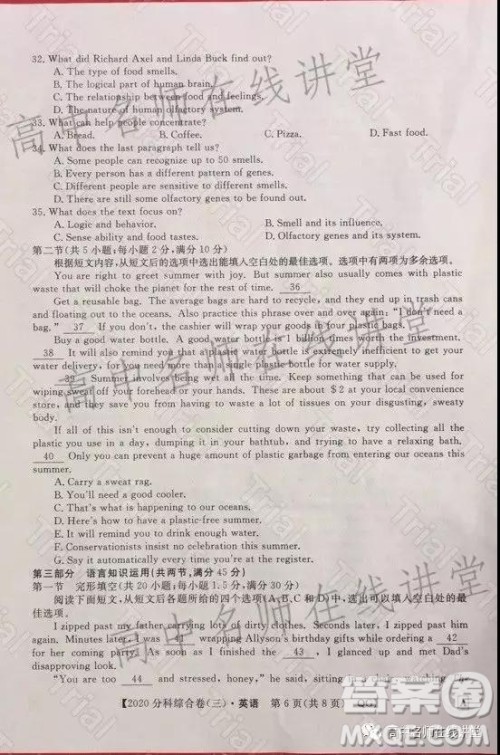 32. What did Richard Axel and Linda Buck find out?
A. The type of food smells.
B. The logical part of human brain.
C. The relationship between food and feelings.
D. The nature of human olfactory system.
33. What can help people concentrate?
A. Bread. B. Coffee. C. Pizza. D. Fast food.
34. What does the last paragraph tell us?
A. Some people can recognize up to 50 smells.
B. Every person has a different pattern of genes.
C. Different people are sensitive to different smells.
D. There are still some olfactory genes to be found out.
35. What does the text focus on?
A. Logic and behavior. B. Smell and its influence.
C. Sense ability and food tastes. D. Olfactory genes and its system.
第二节(共5小题;每小题2分,满分10分)
根据短文内容,从短文后的选项中选出能填入空白处的最佳选项。选项中有两项为多余选项。
You are right to greet summer with joy. But summer also usually comes with plastic
waste that will choke the planet for the rest of time. 36
Get a reusable bag. The average bags are hard to recycle, and they end up in trash cans
and floating out to the oceans. Also practice this phrase over and over again: "I don't need a
bag." 37 If you don't, the cashier will wrap your goods in four plastic bags.
Buy a good water bottle. A good water bottle is 1 billion times worth the investment.
38 It will also remind you that a plastic water bottle is extremely inefficient to get your
water delivery, for you need more than a single plastic bottle for water supply.
39 Summer involves getting wet all the time. Keep something that can be used for
wiping sweat off your forehead or your hands. These are about $2 at your local convenience
store, meaning you have no excuse to waste a lot of tissues on your disgusting, sweaty
body.
If all of this isn't enough to consider cutting down your waste, try collecting all the
plastic you use in a day, dumping it in your bathtub, and trying to have a relaxing bath.
40 Only you can prevent a huge amount of plastic garbage from entering our oceans this
summer.
A. Carry a sweat rag.
B. You'll need a good cooler.
C. That's what is happening to our oceans.
D. Here's how to have a plastic-free summer.
E. You'll find it will save you a lot of money.
F. Conservationists insist no denial this summer.
G. Say it automatically every time you're at the register.
第三部分 语言知识运用(共两节,满分45分)
第一节 完形填空(共20小题;每小题1.5分,满分30分)
阅读下面短文,从短文后各题所给的四个选项(A、B、C和D)中,选出可以填入空白处的最佳选项。
I zipped past my father carrying lots of dirty clothes. Seconds later, I zipped past him
again. Minutes later, I was 41 wrapping Allyson's birthday gifts while ordering a 42
for her coming party. As soon as I finished the 43, I glanced up and met Dad's
disapproving look.
"You are too 44 and stressed, honey," he said. "You can't keep this up without
【2020分科综合卷(三)·英语 第6页(共8页) QG】
高中名师在线讲堂
高中名师在线讲堂
高中名师在线讲堂
高中名师在线讲堂